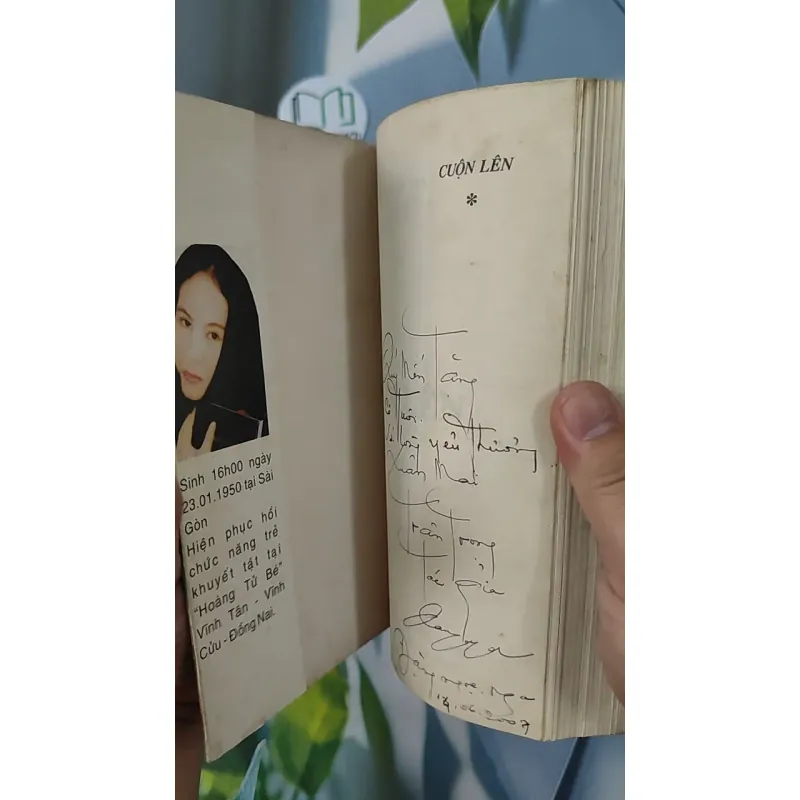 Sinh 16h00 ngày
23.01.1950 tại Sài
Gòn
Hiện phục hồi
chức năng trẻ
khuyết tật tại
“Hoàng Tử Bé”
Vĩnh Tân - Vĩnh
Cửu - Đồng Nai.
CUỘN LÊN
*
Quý Mến Tặng
yêu Thương
Xuân Mai
Trân Trọng
Tác giả
Đặng ngọc Nga
14.06.2007